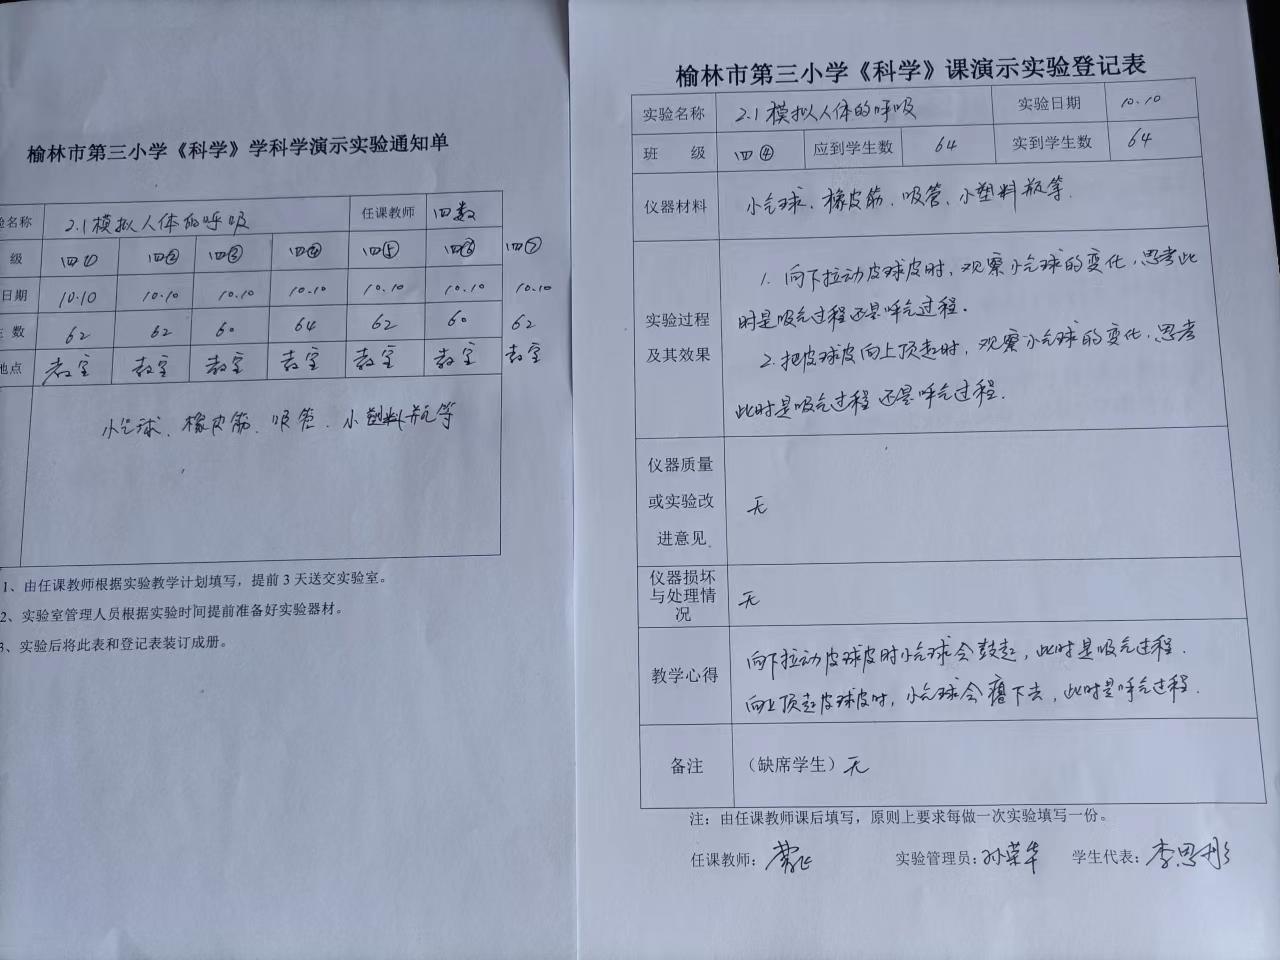 榆林市第三小学《科学》学科学演示实验通知单
验名称 2.1模拟人体的呼吸 任课教师 四数
级 四① 四② 四③ 四④ 四⑤ 四⑥ 四⑦
日期 10.10 10.10 10.10 10.10 10.10 10.10 10.10
生数 62 62 60 64 62 60 62
地点 教室 教室 教室 教室 教室 教室 教室
小气球、橡皮筋、吸管、小塑料瓶等
1、由任课教师根据实验教学计划填写，提前3天送交实验室。
2、实验室管理人员根据实验时间提前准备好实验器材。
3、实验后将此表和登记表装订成册。
榆林市第三小学《科学》课演示实验登记表
实验名称 2.1模拟人体的呼吸 实验日期 10.10
班 级 四④ 应到学生数 64 实到学生数 64
仪器材料 小气球、橡皮筋、吸管、小塑料瓶等.
实验过程
及其效果
1. 向下拉动皮球皮时,观察小气球的变化,思考此
时是吸气过程还是呼气过程.
2.把皮球皮向上顶起时,观察小气球的变化,思考
此时是吸气过程还是呼气过程.
仪器质量
或实验改
进意见
无
仪器损坏
与处理情
况
无
教学心得
向下拉动皮球皮时小气球会鼓起,此时是吸气过程.
向上顶起皮球皮时,小气球会瘪下去,此时是呼气过程.
备注 （缺席学生）无
注：由任课教师课后填写，原则上要求每做一次实验填写一份。
任课教师： 实验管理员：孙荣华 学生代表：李思彤